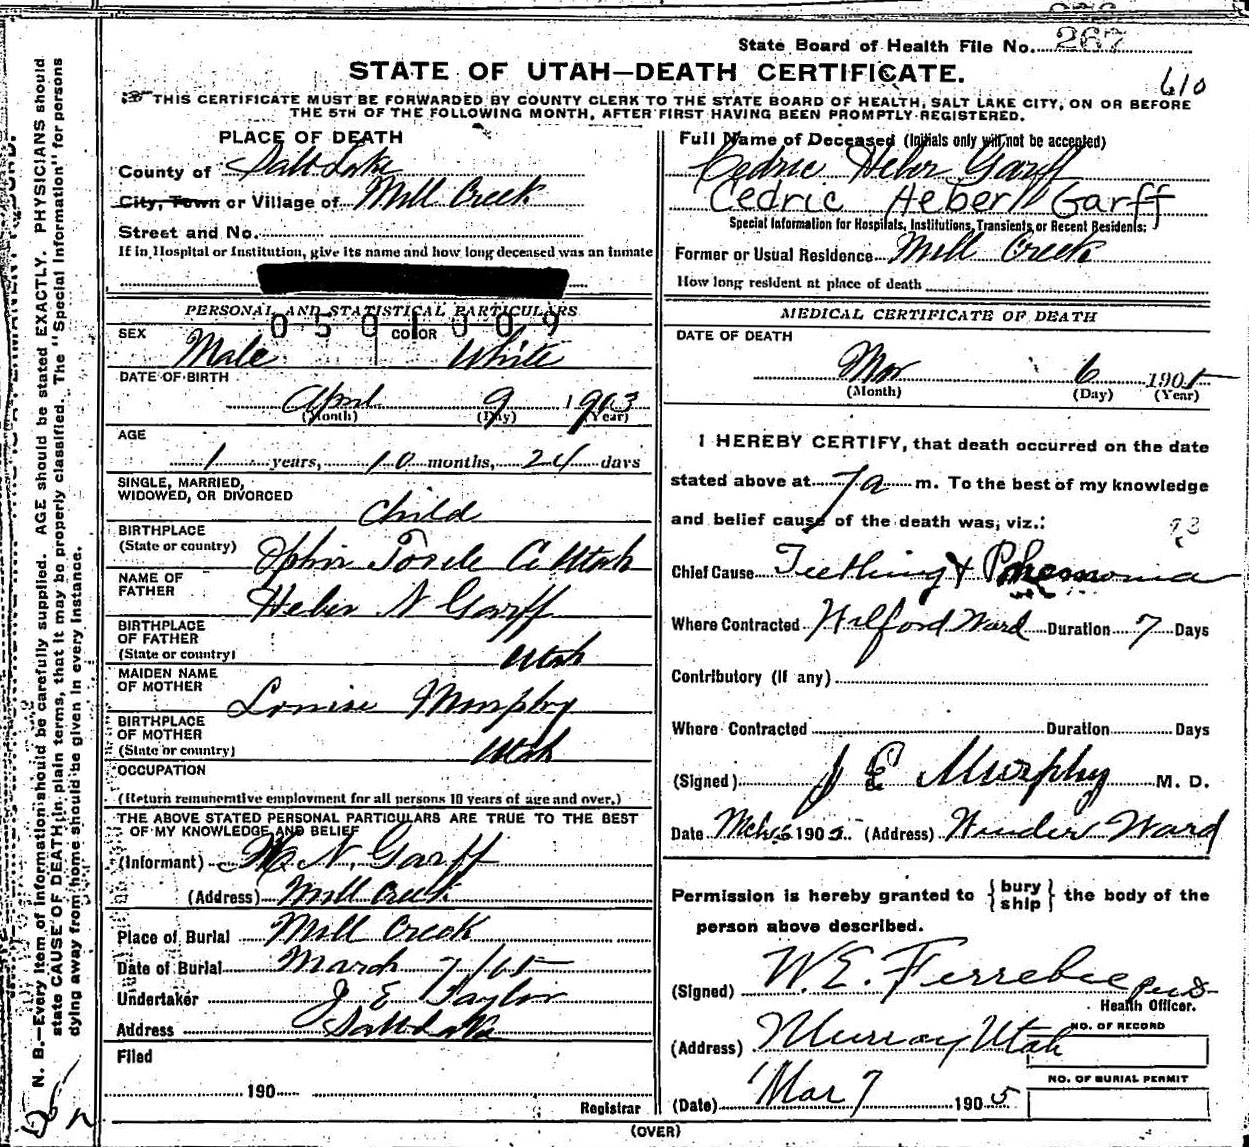 State Board of Health File No. 267
STATE OF UTAH—DEATH CERTIFICATE.
610
THIS CERTIFICATE MUST BE FORWARDED BY COUNTY CLERK TO THE STATE BOARD OF HEALTH, SALT LAKE CITY, ON OR BEFORE
THE 5TH OF THE FOLLOWING MONTH, AFTER FIRST HAVING BEEN PROMPTLY REGISTERED.
PLACE OF DEATH
County of Salt Lake
City, Town or Village of Mill Creek
Street and No.
If in Hospital or Institution, give its name and how long deceased was an inmate
PERSONAL AND STATISTICAL PARTICULARS
0501009
SEX Male COLOR White
DATE OF BIRTH
April 9 1903
(Month) (Day) (Year)
AGE
1 years, 10 months, 24 days
SINGLE, MARRIED,
WIDOWED, OR DIVORCED
Child
BIRTHPLACE
(State or country) Ophir Tooele Co Utah
NAME OF
FATHER Heber N Garff
BIRTHPLACE
OF FATHER
(State or country) Utah
MAIDEN NAME
OF MOTHER Louise Murphy
BIRTHPLACE
OF MOTHER
(State or country) Utah
OCCUPATION
(Return remunerative employment for all persons 10 years of age and over.)
THE ABOVE STATED PERSONAL PARTICULARS ARE TRUE TO THE BEST
OF MY KNOWLEDGE AND BELIEF
(Informant) H N. Garff
(Address) Mill Creek
Place of Burial Mill Creek
Date of Burial March 7/05
Undertaker J E Taylor
Address Salt Lake
Filed
190
Registrar
Full Name of Deceased (Initials only will not be accepted)
Cedric Heber Garff
Cedric Heber Garff
Special Information for Hospitals, Institutions, Transients or Recent Residents:
Former or Usual Residence Mill Creek
How long resident at place of death
MEDICAL CERTIFICATE OF DEATH
DATE OF DEATH
Mar 6 1905
(Month) (Day) (Year)
I HEREBY CERTIFY, that death occurred on the date
stated above at 7 a m. To the best of my knowledge
and belief cause of the death was, viz.:
93
Chief Cause Teething & Pneumonia
Where Contracted Wilford Ward Duration 7 Days
Contributory (if any)
Where Contracted Duration Days
(Signed) J E Murphy M. D.
Date Mch 1905 (Address) Winder Ward
Permission is hereby granted to {bury ship} the body of the
person above described.
(Signed) W. E. Ferrebee
Health Officer.
(Address) Murray Utah
NO. OF RECORD
NO. OF BURIAL PERMIT
(Date) Mar 7 1905
(OVER)
N. B.—Every item of information should be carefully supplied. AGE should be stated EXACTLY. PHYSICIANS should
state CAUSE OF DEATH in plain terms, that it may be properly classified. The "Special Information" for persons
dying away from home should be given in every instance.